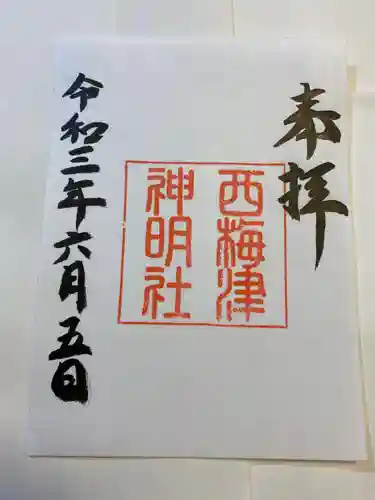 奉拝
西梅津
神明社
令和三年六月五日